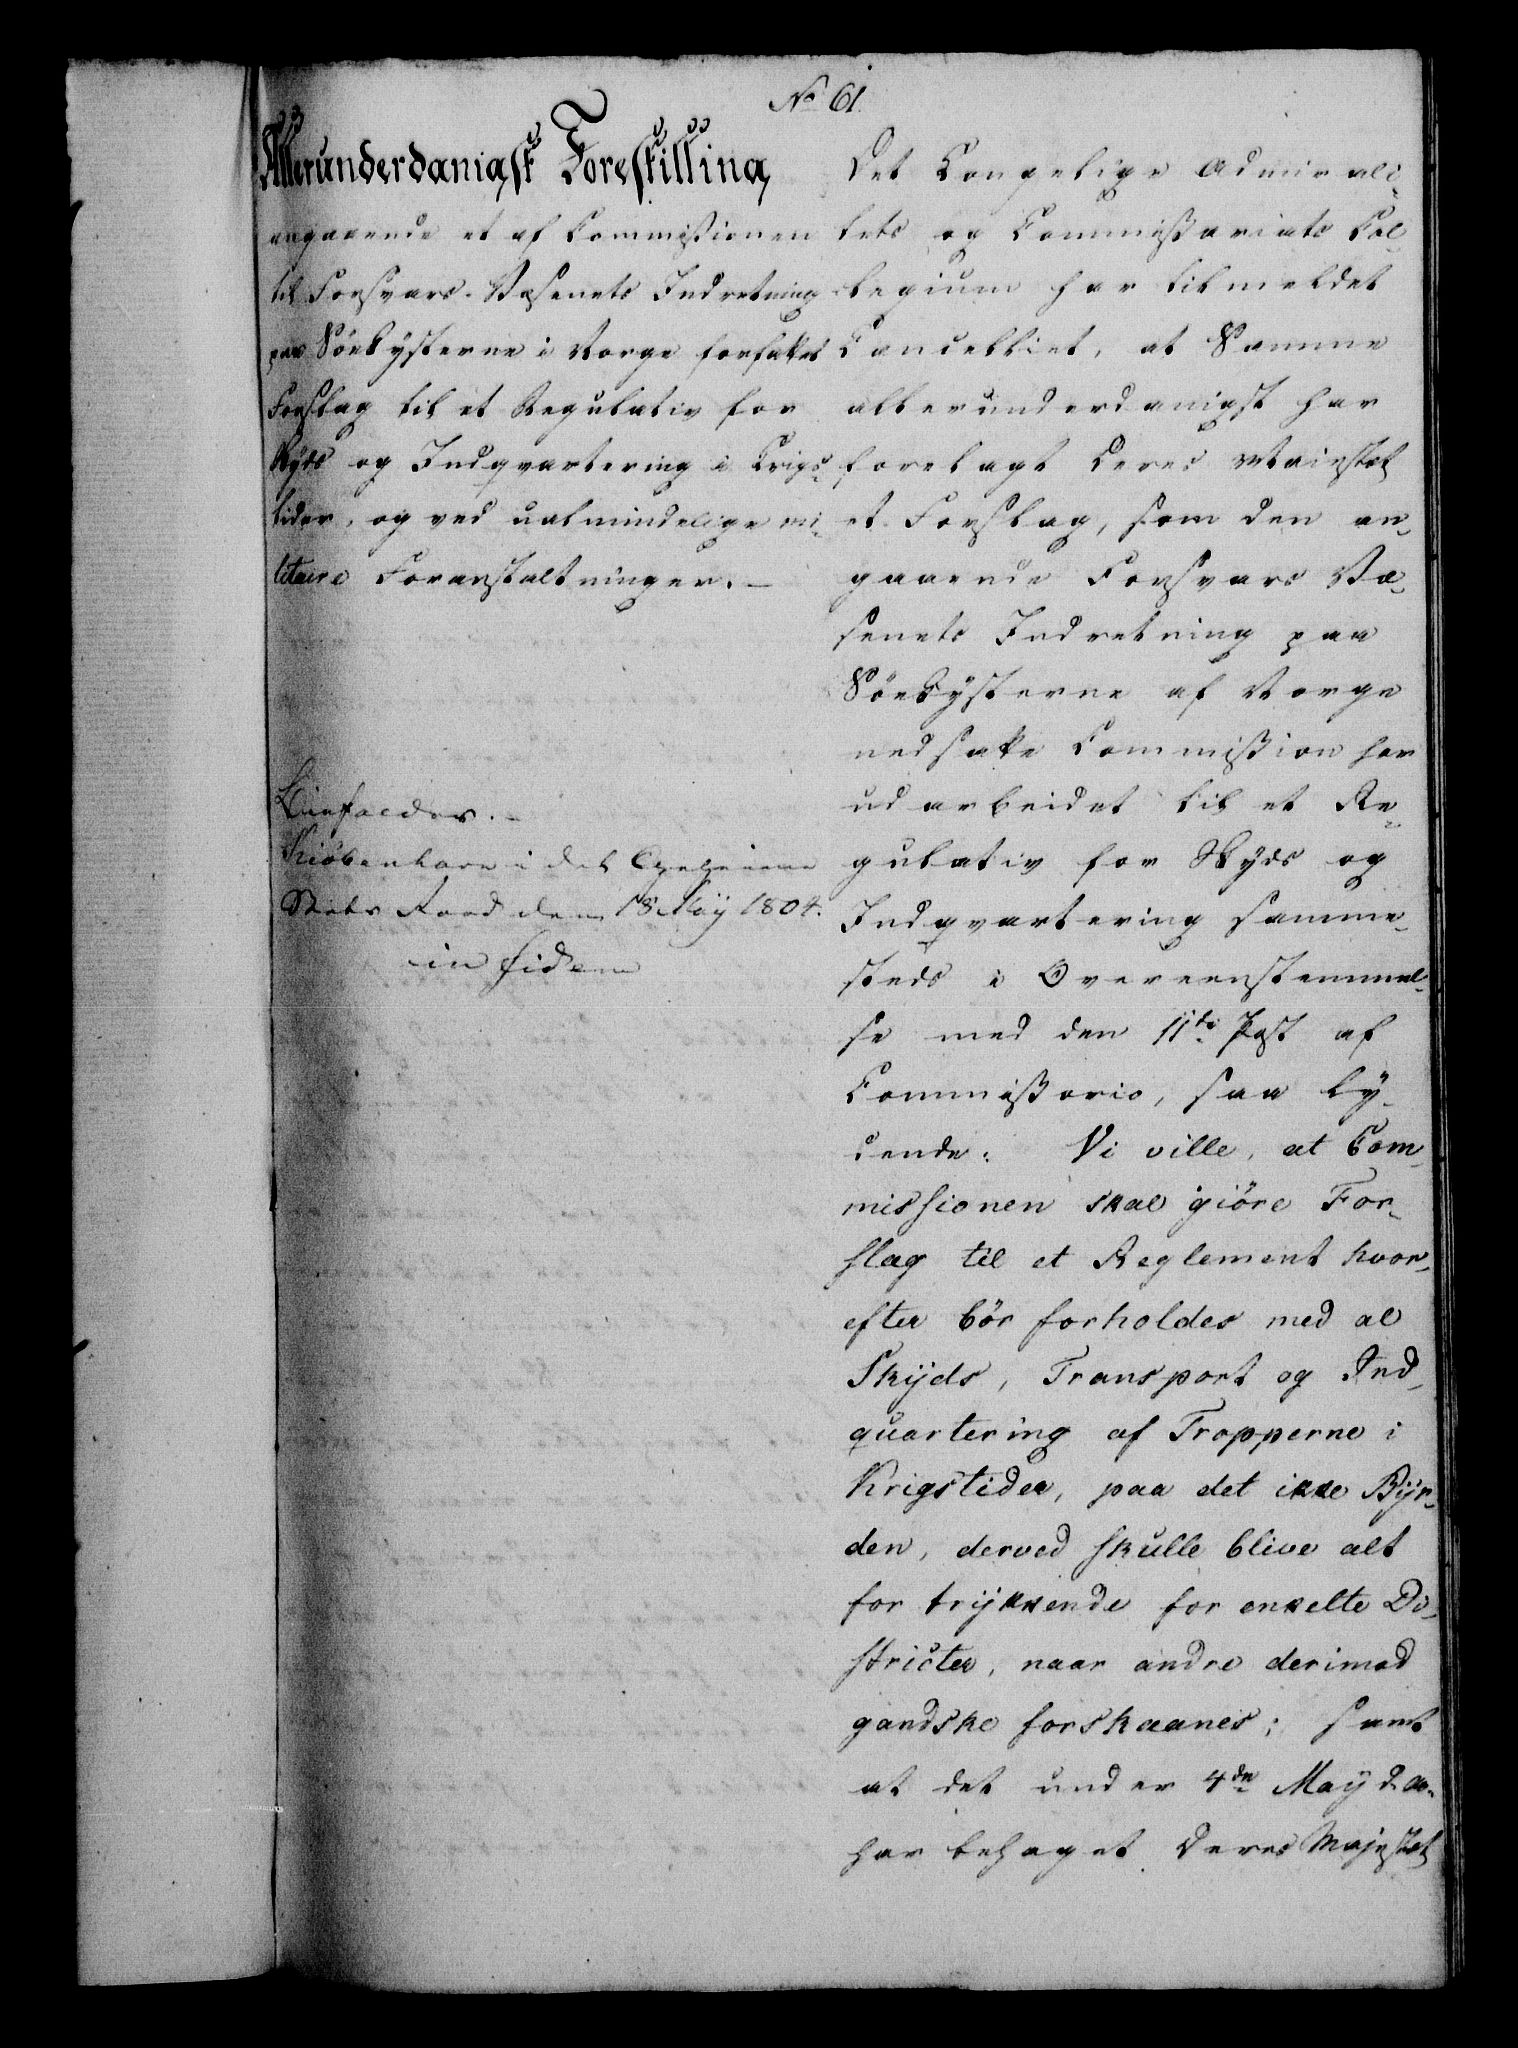 No 61.
Allerunderdanigst Forestilling
angaaende et af Commissionen
til Forsvars-Væsenets Indretning
paa Söekysterne i Norge forfattet
Forslag til et Regulativ for
Skyds og Indqvartering i Krigs-
tider, og ved ualmindelige mi-
litaire Foranstaltninger. —
Bifaldes. —
Kiöbenhavn i det
Stats Raad den 18 May 1804.
in fidem
Det Kongelige Admirali-
tets og Commissariats Col-
legium har tilmeldet
Cancelliet, at Samme
allerunderdanigst har
forelagt Deres Majestæt
et Forslag, som den an-
gaaende Forsvars Væ-
senets Indretning paa
Söekysterne af Norge
nedsatte Commission har
udarbeidet til et Re-
gulativ for Skyds og
Indqvartering samme-
steds i Overeenstemmel-
se med den 11te Post af
Commissorio, saa ly-
dende: Vi ville, at Com-
missionen skal giöre For-
slag til et Reglement hvor-
efter bör forholdes med al
Skyds, Transport og Ind-
quartering af Tropperne i
Krigstider, paa det ikke Byr-
den, derved skulle blive alt
for trykkende for enkelte Di-
stricter, naar andre derimod
gandske forskaanes; samt
at det under 4de May d. A.
har behaget Deres Majestæt